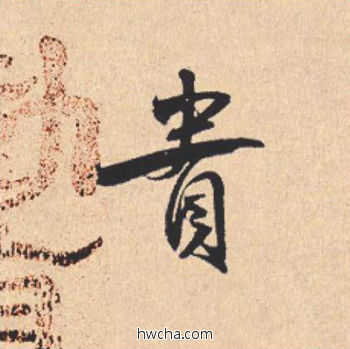 貴
hwcha.com